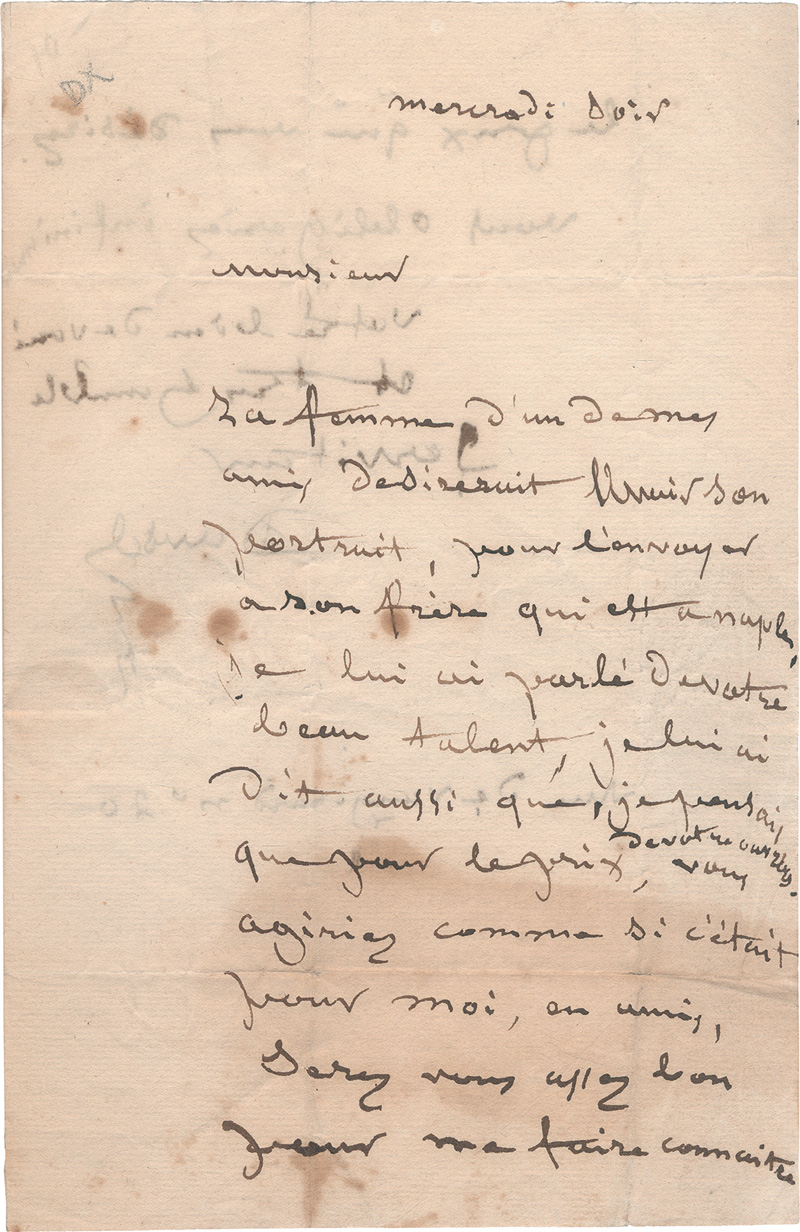 mercredi Soir
monsieur
La femme, d'un de mes
amis desireruit avoir son
portrait, pour l'envoyer
a son frère qui est a naples,
je lui ai parlé de votre
beau talent, je lui ai
Dit aussi que, je pensais
que pour le prix, de votre ouvrage. vous
agiriez comme si c'était
pour moi, en amis,
Serez vous assez bon
pour me faire connaitre